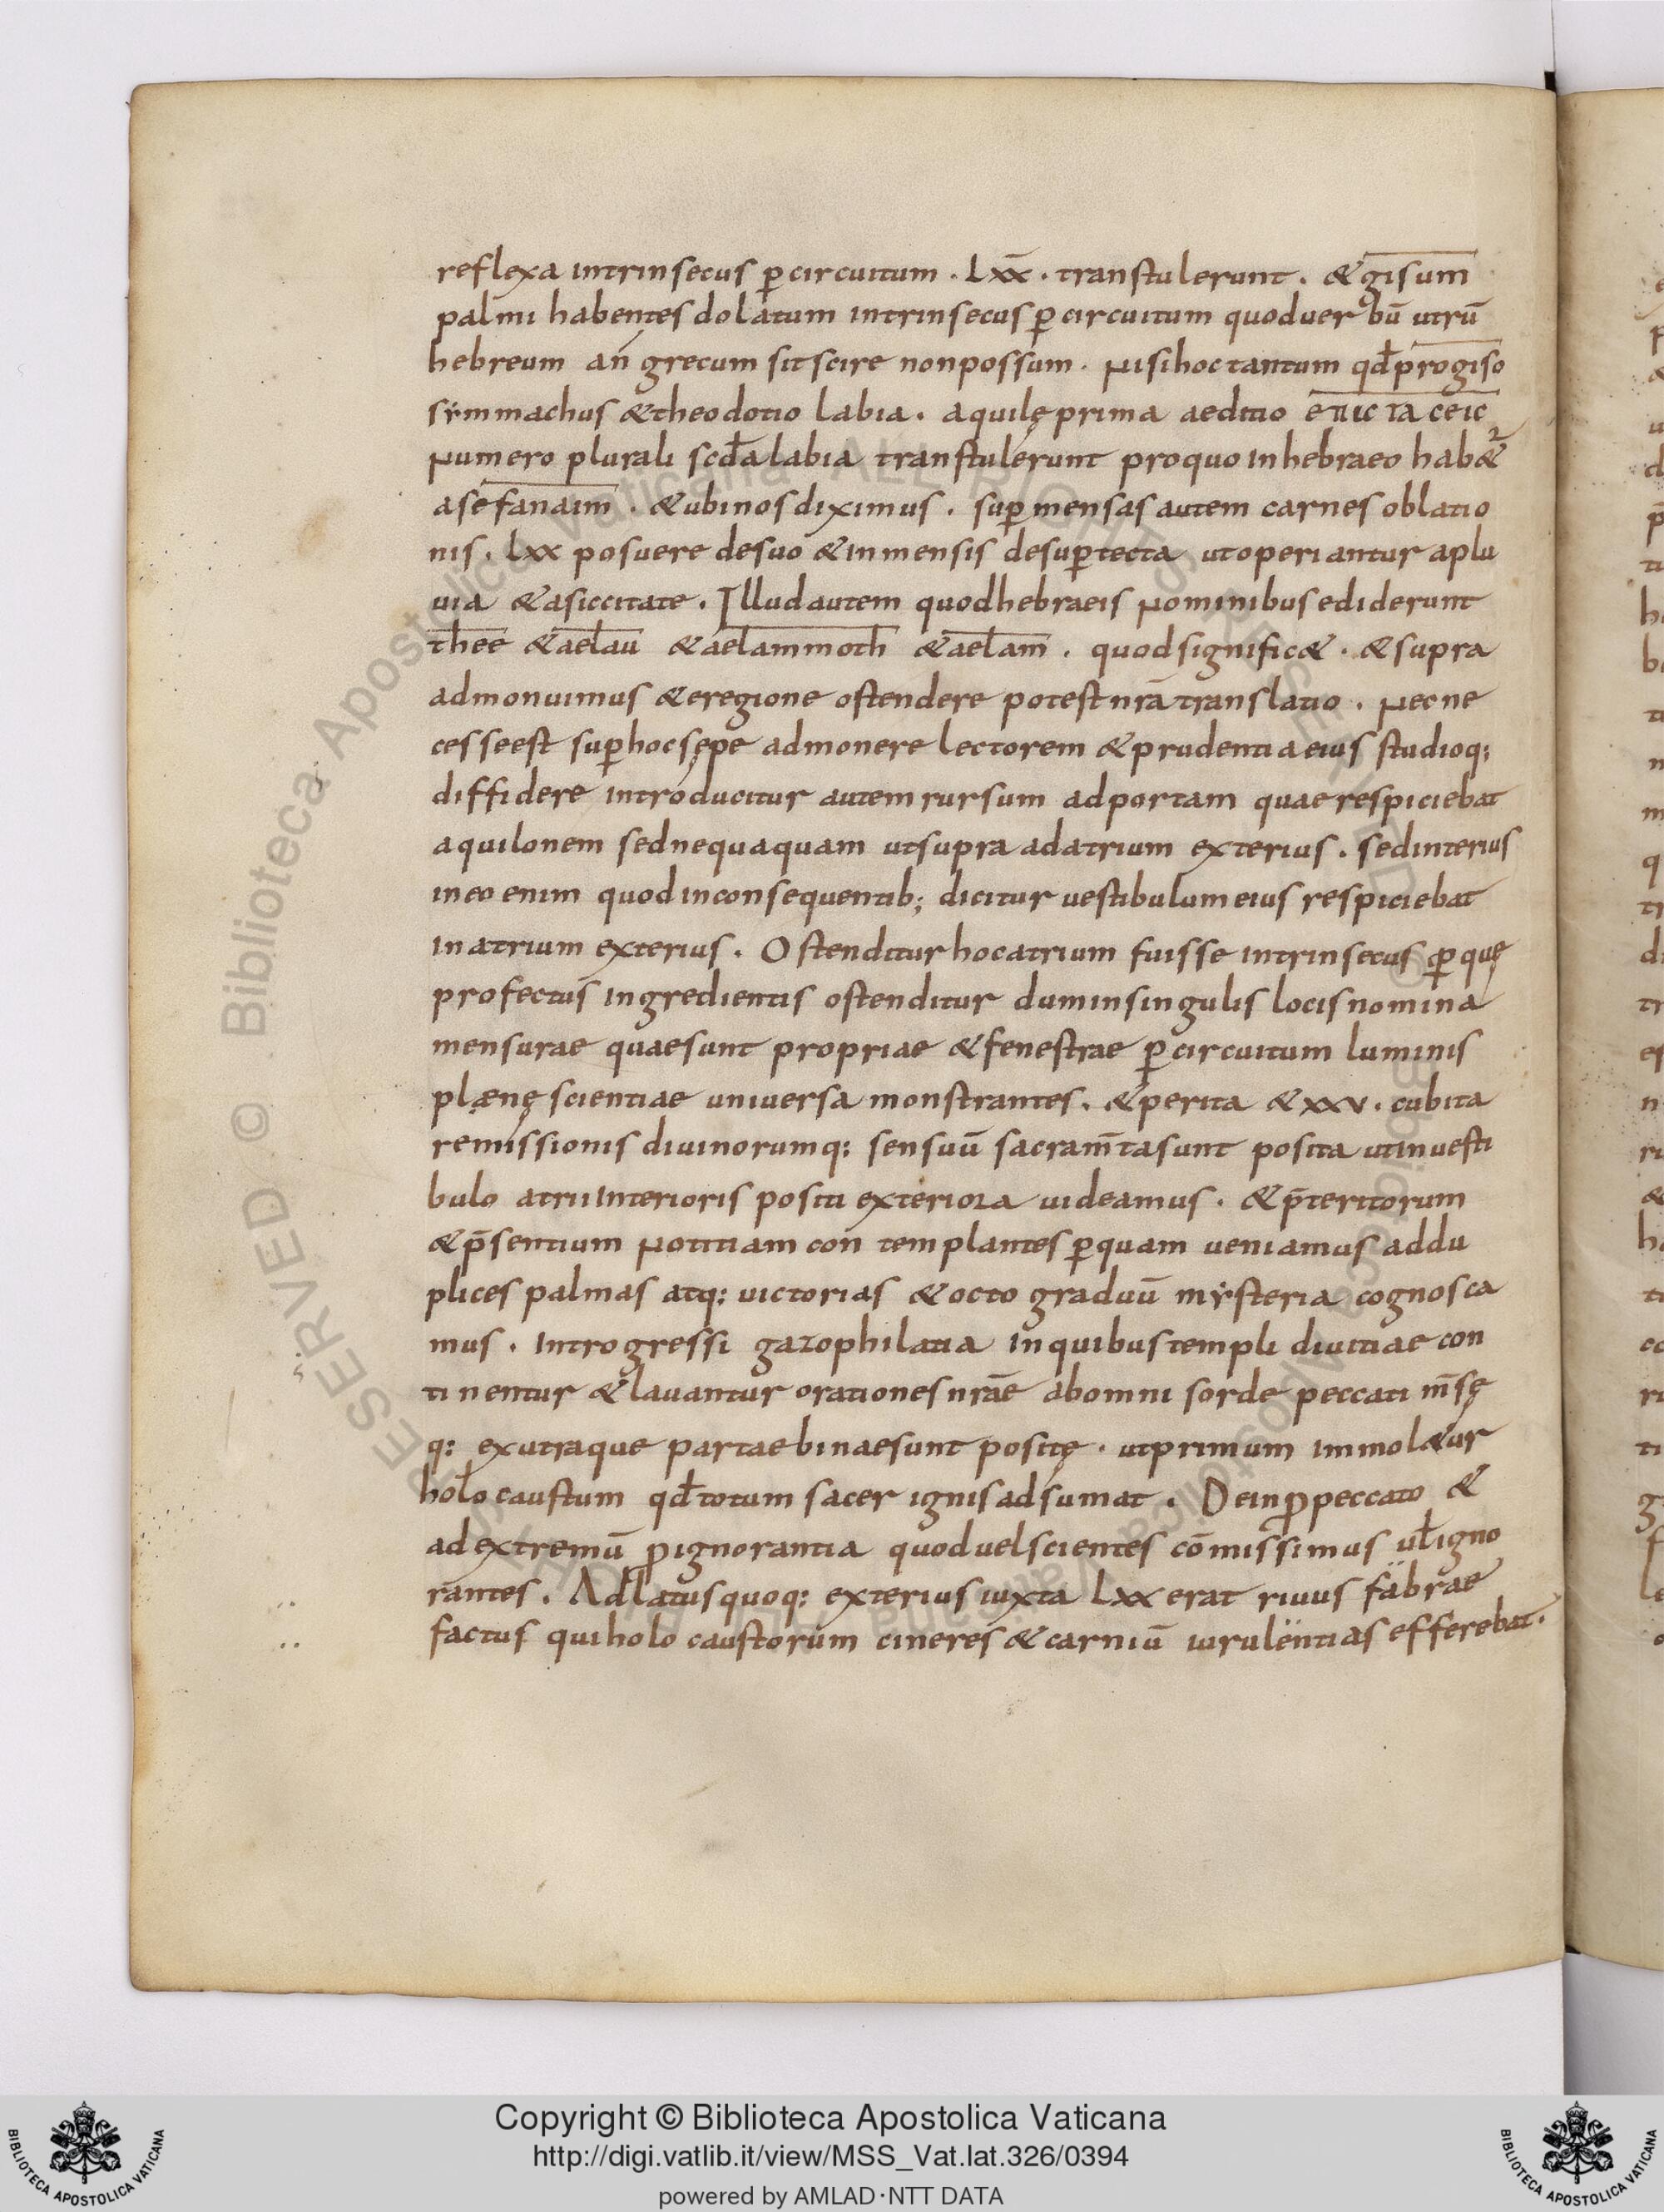 reflexa intrinsecus ꝑ circuitum . Lxx̄ . transtulerunt . & gisum
palmi habentes dolatum intrinsecus ꝑ circuitum quod uerbū utrū
hebreum an grecum sit scire non possum . Nisi hoc tantum qđ pro giso
sẏmmachus & theodotio labia . aquilę prima aeditio
Numero plurali scđa labia transtulerunt pro quo in hebraeo hab&ur
asefanaim . & ubi nos diximus . suꝑ mensas autem carnes oblatio
nis . Lxx posuere de suo & in mensis desuꝑ tecta ut operiantur a plu
uia & a siccitate . Illud autem quod hebraeis Nominibus ediderunt
thee & aelau & aelammoth & aelam . quod signific& . & supra
admonuimus & e regione ostendere potest nrā translatio . Nec ne
cesse est suꝑ hoc sępe admonere lectorem & prudentia eius studioq;
diffidere introducitur autem rursum ad portam quae respiciebat
aquilonem sed nequaquam ut supra ad atrium exterius . sed interius
in eo enim quod in consequentib; dicitur uestibulum eius respiciebat
in atrium exterius . Ostenditur hoc atrium fuisse intrinsecus ꝑ quę
profectus ingredientis ostenditur dum in singulis locis nomina
mensurae quae sunt propriae & fenestrae ꝑ circuitum luminis
plænę scientiae uniuersa monstrantes . & perita & xxv . cubita
remissionis diuinorumq: sensuū sacram̄ta sunt posita ut in uesti
bulo atrii interioris positi exteriora uideamus . & p̄teritorum
& p̄sentium Notitiam con templantes ꝑ quam ueniamus ad du
plices palmas atq: uictorias & octo graduū mẏsteria cognosca
mus . Introgressi gazophilatia in quibus templi diuitiae con
tinentur & lauantur orationes nrāe ab omni sorde peccati m̄sę
q: ex utraque partae binae sunt positę . ut primum immol&ur
holocaustum qđ totum sacer ignis adsumat . Dein ꝓ peccato &
ad extremū ꝓ ignorantia quod uel scientes cōmissimus uł igno
rantes . Ad latus quoq: exterius iuxta Lxx erat riuus fabrae
factus qui holocaustorum cineres & carniū iurulentias efferebat .
RESERVED © Biblioteca Apostolica Vaticana ALL RIGHTS RESERVED © Biblioteca Apostolica Vaticana ALL RIGHTS
BIBLIOTECA APOSTOLICA VATICANA
Copyright © Biblioteca Apostolica Vaticana
http://digi.vatlib.it/view/MSS_Vat.lat.326/0394
powered by AMLAD·NTT DATA
BIBLIOTECA APOSTOLICA VATICANA